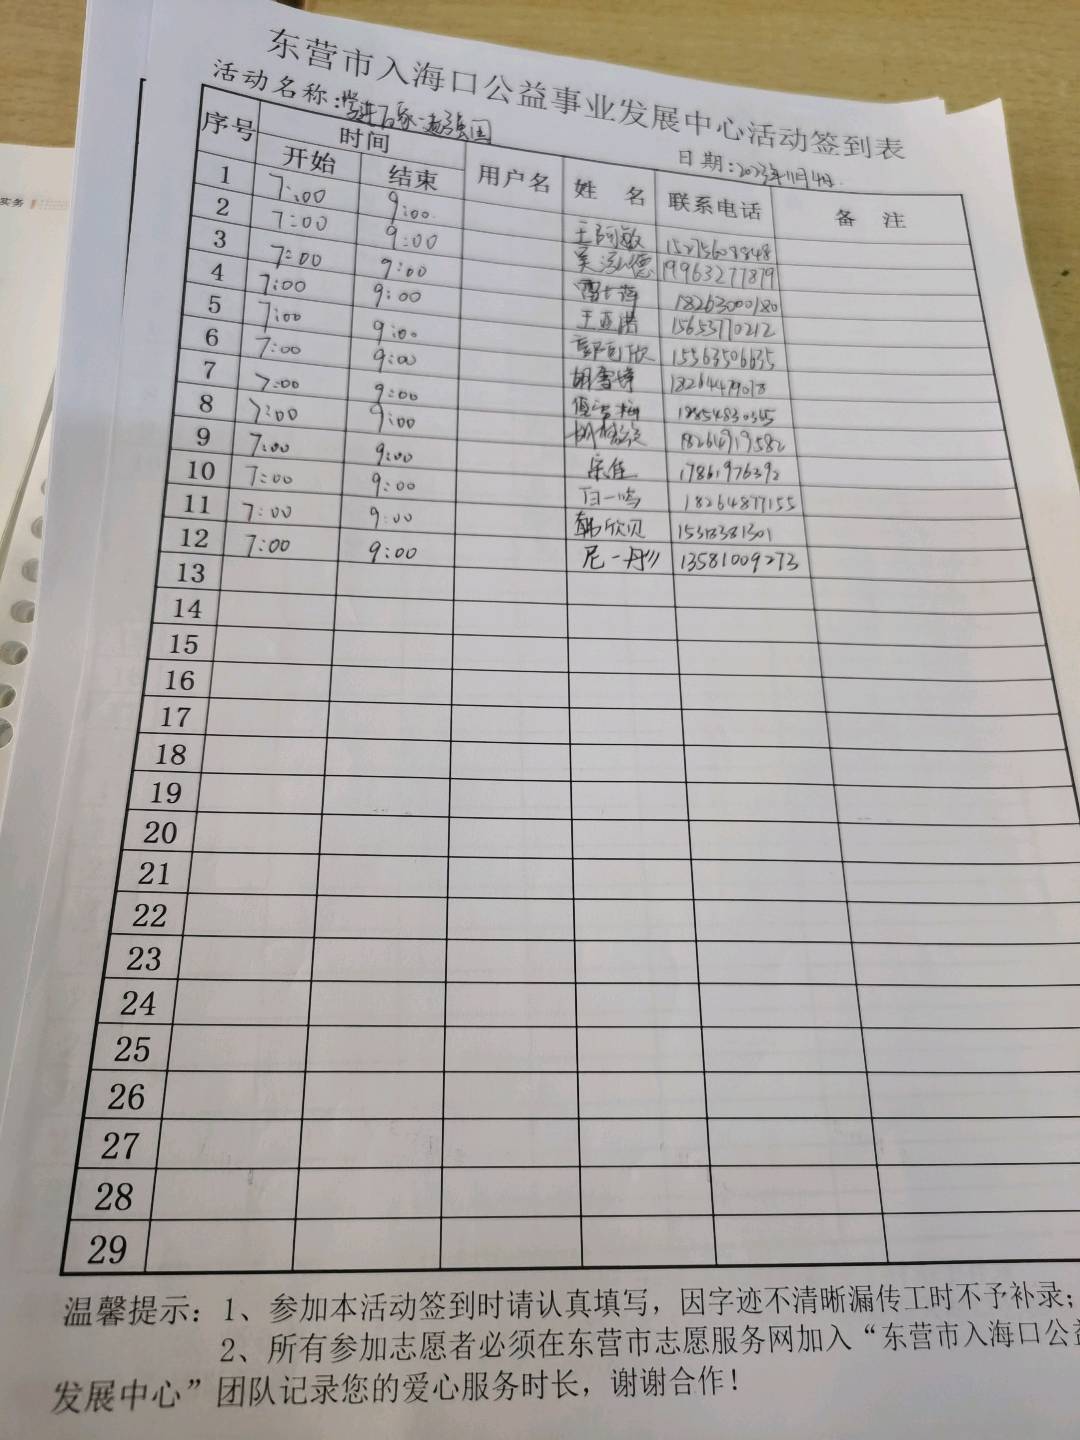 东营市入海口公益事业发展中心活动签到表
活动名称: 日期:2023年11月4日.
序号 时间 用户名 姓 名 联系电话 备 注
开始 结束
1 7:00 9:00 王阿敏
2 7:00 9:00 吴泓德 19963277879
3 7:00 9:00 18263000180
4 7:00 9:00 王亚洁 15653770212
5 7:00 9:00 15563506635
6 7:00 9:00 胡雪婷
7 7:00 9:00
8 7:00 9:00 18264919582
9 7:00 9:00 宋佳 17861976392
10 7:00 9:00 白一鸣 18264877155
11 7:00 9:00 韩欣贝 15318381301
12 7:00 9:00 尼一丹 13581009273
13
14
15
16
17
18
19
20
21
22
23
24
25
26
27
28
29
温馨提示：1、参加本活动签到时请认真填写，因字迹不清晰漏传工时不予补录；
2、所有参加志愿者必须在东营市志愿服务网加入“东营市入海口公益
发展中心”团队记录您的爱心服务时长，谢谢合作！
实务